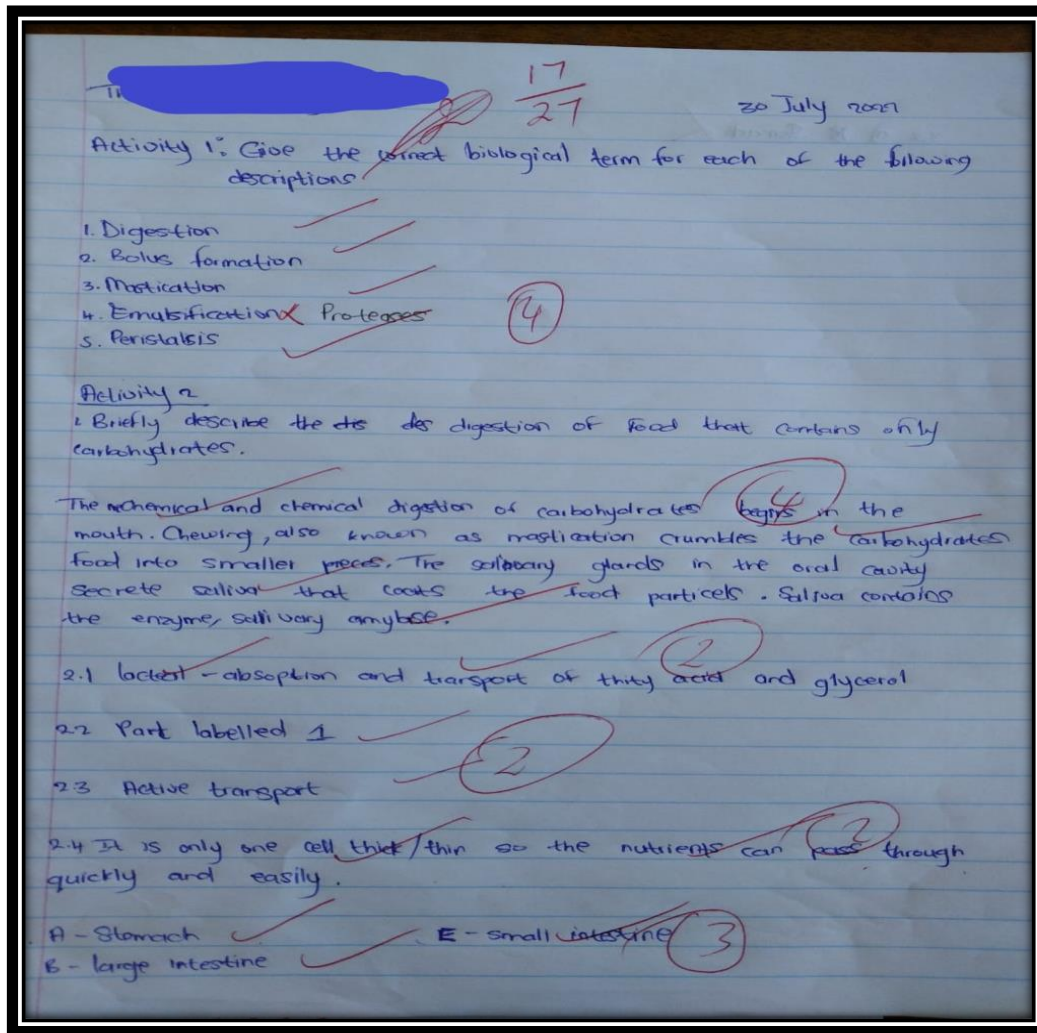 17
27
30 July 2021
Activity 1: Give the correct biological term for each of the following
descriptions
1. Digestion
2. Bolus formation
3. Mastication
4. Emulsification Proteases
4
5. Peristalsis
Activity 2
1 Briefly describe the des digestion of food that contains only
carbohydrates.
4
The mchemical and chemical digestion of carbohydrates begins in the
mouth. Chewing, also known as mastication crumbles the carbohydrates
food into smaller pieces. The salivary glands in the oral cavity
secrete saliva that coats the food particels. Saliva contains
the enzyme, salivary amylase.
2
2.1 lacteal - absoption and transport of thity acid and glycerol
2.2 Part labelled 1
2
2.3 Active transport
2.4 It is only one cell thick/thin so the nutrients can pass through
2
quickly and easily.
A - Stomach E - small intestine 3
B - large intestine